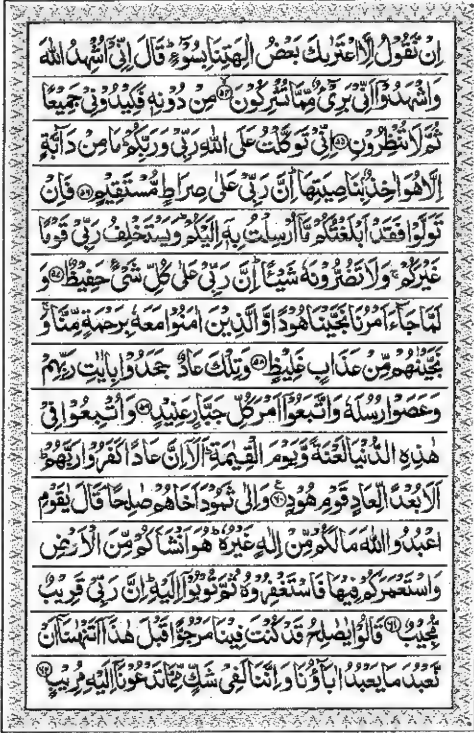 اِنْ نَّقُوْلُ اِلَّا اعْتَرٰىكَ بَعْضُ اٰلِهَتِنَا بِسُوْٓءٍ ؕ قَالَ اِنِّیْۤ اُشْهِدُ اللّٰهَ
وَاشْهَدُوْۤا اَنِّیْ بَرِیْٓءٌ مِّمَّا تُشْرِكُوْنَ ۙ۝۵۴ مِنْ دُوْنِهٖ فَكِیْدُوْنِیْ جَمِیْعًا
ثُمَّ لَا تُنْظِرُوْنِ ۝۵۵ اِنِّیْ تَوَكَّلْتُ عَلَی اللّٰهِ رَبِّیْ وَرَبِّكُمْ ؕ مَا مِنْ دَآبَّةٍ
اِلَّا هُوَ اٰخِذٌۢ بِنَاصِیَتِهَا ؕ اِنَّ رَبِّیْ عَلٰی صِرَاطٍ مُّسْتَقِیْمٍ ۝۵۶ فَاِنْ
تَوَلَّوْا فَقَدْ اَبْلَغْتُكُمْ مَّاۤ اُرْسِلْتُ بِهٖۤ اِلَیْكُمْ ؕ وَیَسْتَخْلِفُ رَبِّیْ قَوْمًا
غَیْرَكُمْ ۚ وَلَا تَضُرُّوْنَهٗ شَیْـًٔا ؕ اِنَّ رَبِّیْ عَلٰی كُلِّ شَیْءٍ حَفِیْظٌ ۝۵۷ وَ
لَمَّا جَآءَ اَمْرُنَا نَجَّیْنَا هُوْدًا وَّالَّذِیْنَ اٰمَنُوْا مَعَهٗ بِرَحْمَةٍ مِّنَّا ۚ وَ
نَجَّیْنٰهُمْ مِّنْ عَذَابٍ غَلِیْظٍ ۝۵۸ وَتِلْكَ عَادٌ ۙ جَحَدُوْا بِاٰیٰتِ رَبِّهِمْ
وَعَصَوْا رُسُلَهٗ وَاتَّبَعُوْۤا اَمْرَ كُلِّ جَبَّارٍ عَنِیْدٍ ۝۵۹ وَاُتْبِعُوْا فِیْ
هٰذِهِ الدُّنْیَا لَعْنَةً وَّیَوْمَ الْقِیٰمَةِ ؕ اَلَاۤ اِنَّ عَادًا كَفَرُوْا رَبَّهُمْ ؕ
اَلَا بُعْدًا لِّعَادٍ قَوْمِ هُوْدٍ ۝۶۰ وَاِلٰی ثَمُوْدَ اَخَاهُمْ صٰلِحًا ۘ قَالَ یٰقَوْمِ
اعْبُدُوا اللّٰهَ مَا لَكُمْ مِّنْ اِلٰهٍ غَیْرُهٗ ؕ هُوَ اَنْشَاَكُمْ مِّنَ الْاَرْضِ
وَاسْتَعْمَرَكُمْ فِیْهَا فَاسْتَغْفِرُوْهُ ثُمَّ تُوْبُوْۤا اِلَیْهِ ؕ اِنَّ رَبِّیْ قَرِیْبٌ
مُّجِیْبٌ ۝۶۱ قَالُوْا یٰصٰلِحُ قَدْ كُنْتَ فِیْنَا مَرْجُوًّا قَبْلَ هٰذَاۤ اَتَنْهٰىنَاۤ اَنْ
نَّعْبُدَ مَا یَعْبُدُ اٰبَآؤُنَا وَاِنَّنَا لَفِیْ شَكٍّ مِّمَّا تَدْعُوْنَاۤ اِلَیْهِ مُرِیْبٍ ۝۶۲